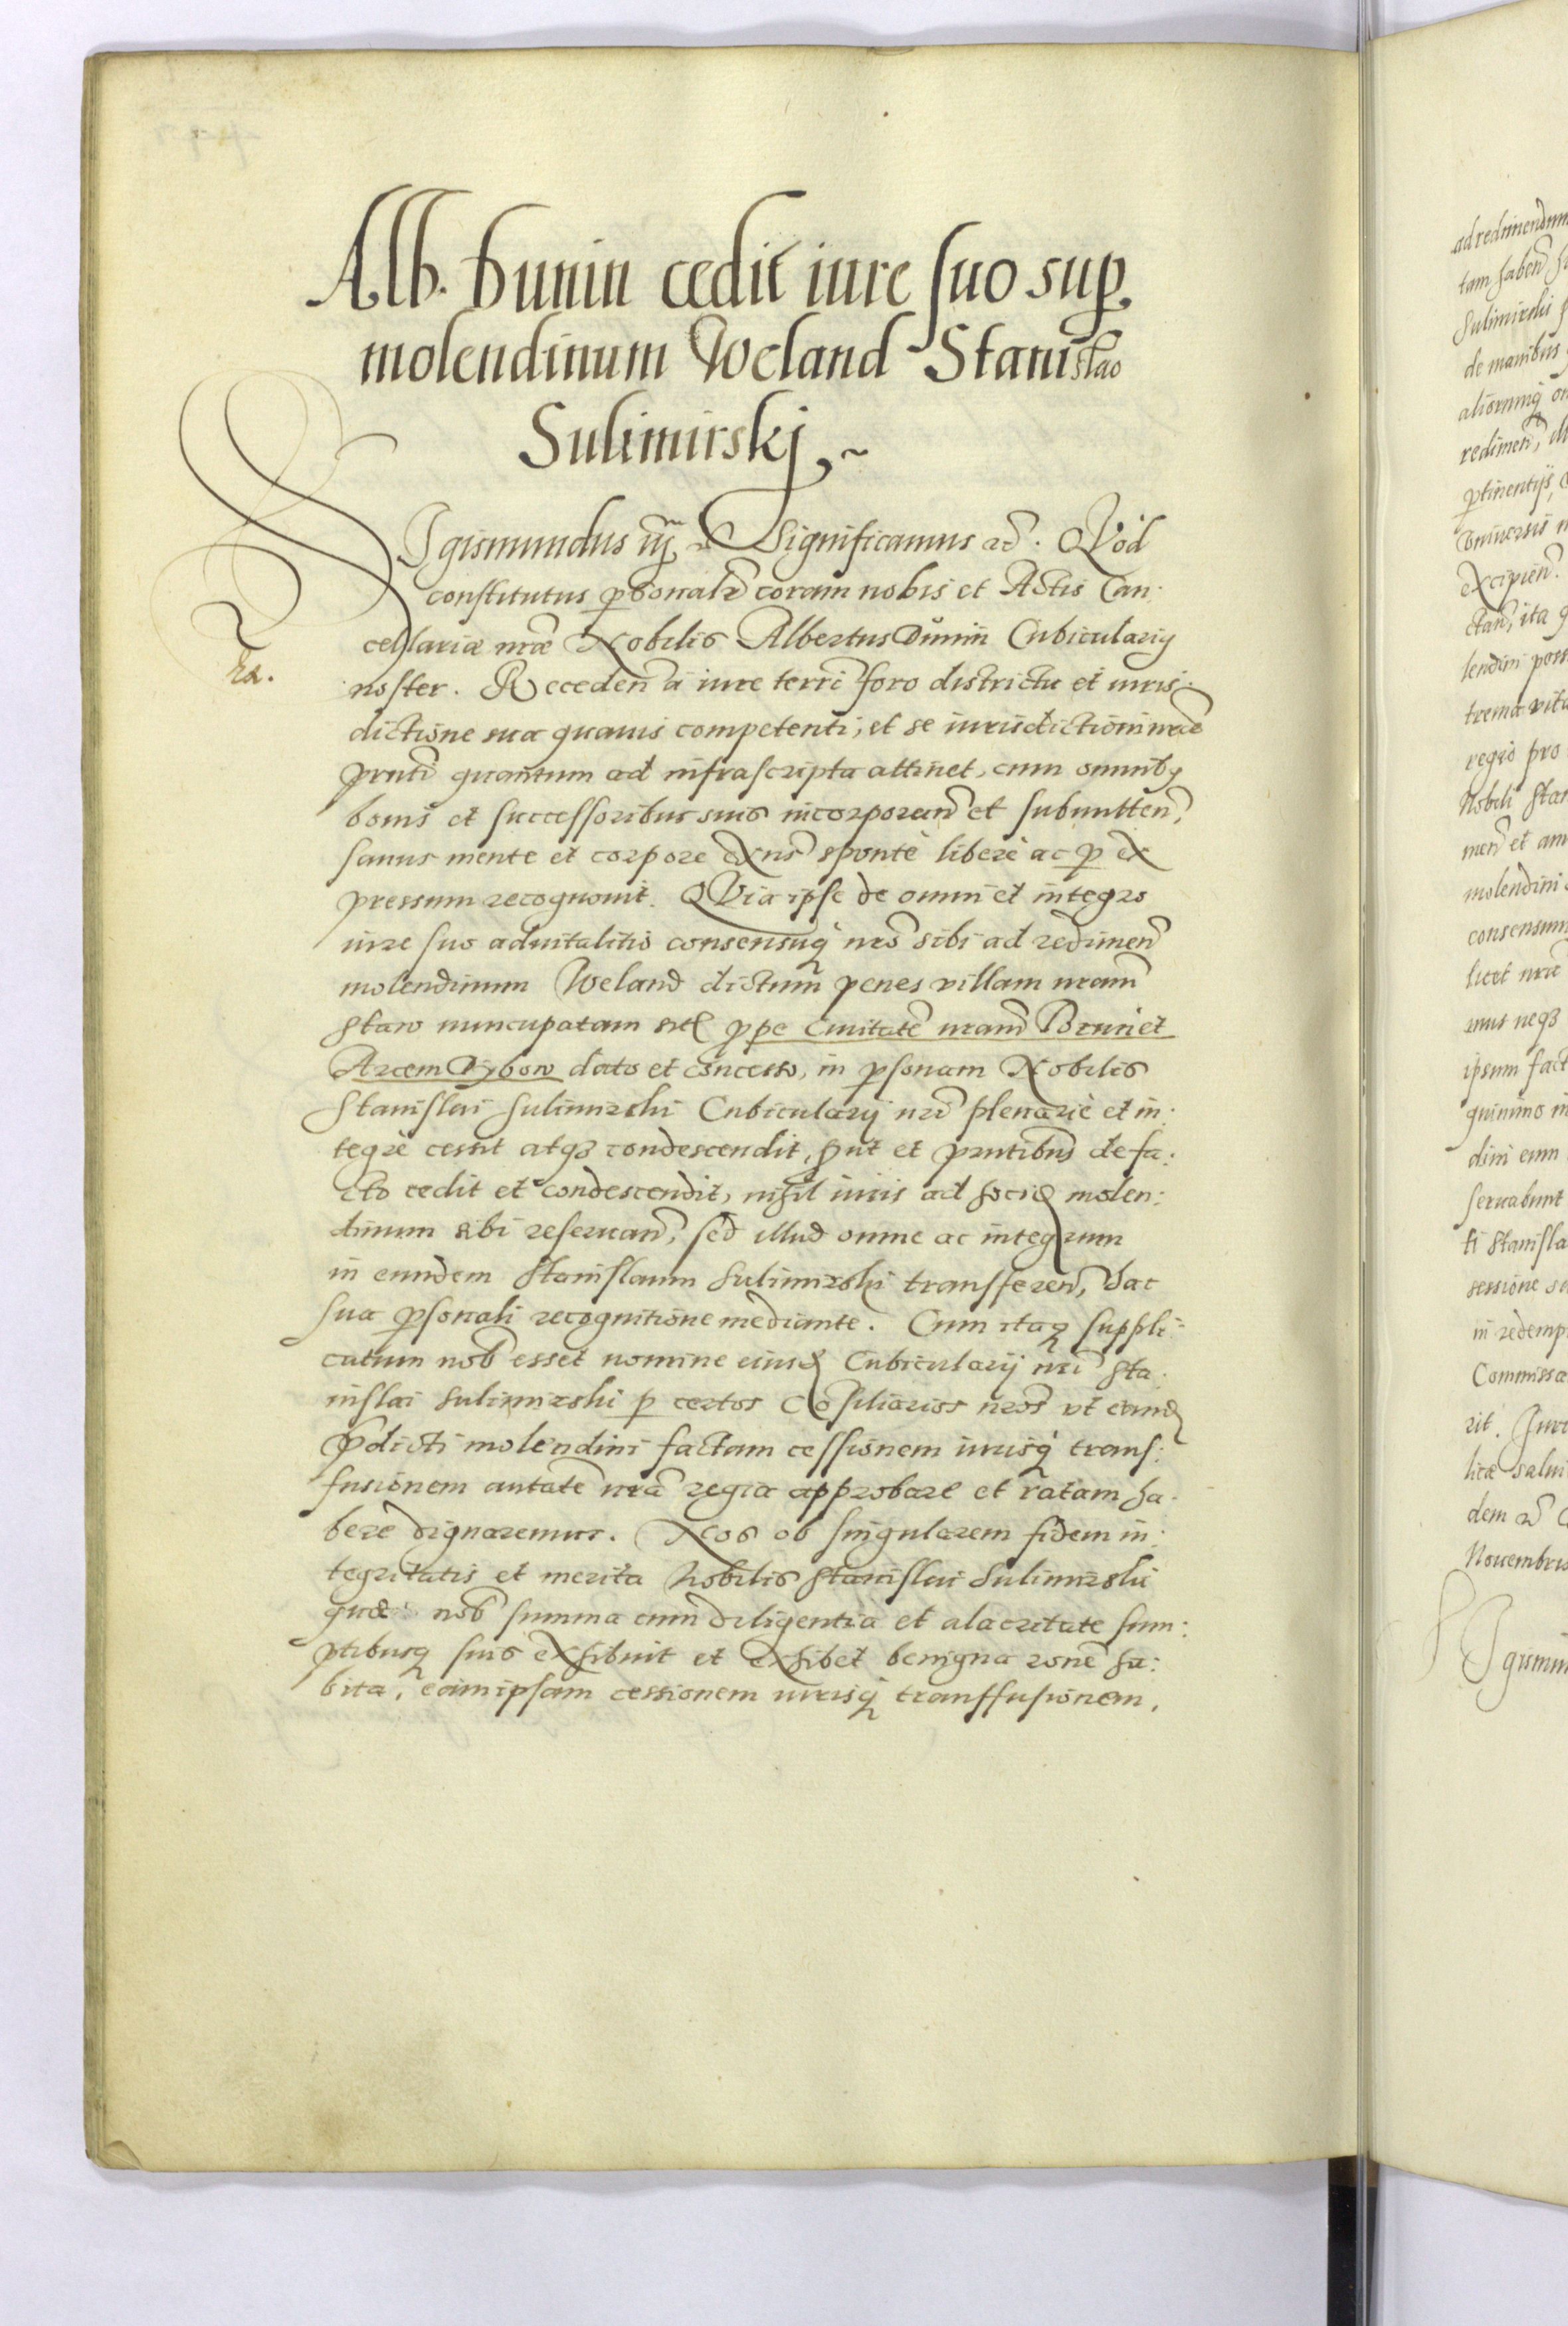 Alb. Dunin cedit iure suo sup
molendinum Weland Stanislao
Sulimirskj,~
SIgismundus iij Significamus &c. QVod
constitutus psonalr coram nobis et Actis Can:
cellariæ nræ Nobilis Albertus Dunin Cubiculariy
noster. Receden a iure terri foro districtu et iuris:
dictione sua quauis competenti, et se iurisdictioni nræ
pnti quantum ad infrascripta attinet, cum omniby
bonis et successoribus suis incorporan et submitten,
sanus mente et corpore exns sponte libere ac p ex
pressum recognouit. QVia ipse de omni et integro
iure suo aduitalitio consensuq nro sibi ad redimen
molendinum Weland dictum penes villam nram
Staw nuncupatam prpe Ciuitate nram Bruniet
Arcem Dybow dato et concesso, in psonam Nobilis
Stanislai Sulimirski Cubicularij nri plenarie et in:
tegre cessit atq3 condescendit, put et pntibus de fa:
cto cedit et condescendit, nihil iuris ad hoc molen:
dinum sibi reseruan, sed illud omne ac integrum
in eundem Stanislaum Sulimirski transferen, hac
sua psonali recognitione mediante. Cum itaq suppli:
catum nob esset nomine eiusd Cubicularij nri Sta:
nislai Sulimirski p certos Cosiliarios nros vt eand
pdicti molendini factam cessionem iurisq trans:
fusionem autate nra regia approbare et ratam ha:
bere dignaremur. Nos ob singularem fidem in:
tegritatis et merita Nobilis Stanislai Sulimirski
quæ nob summa cum diligentia et alacritate sum:
ptibusq suis exhibuit et exhibet benigna rone ha:
bita, eam ipsam cessionem iurisq transfusionem,
ad redimendum
tam haben
Sulimirski
de manibus
aliorumq
redimen,
ptinentijs,
vniuersis
excipien.
ctan, ita
lendini
trema
regio pro
Nobili
men et am
molendini
consensum
licet nræ
mus neq3
ipsum fact
quinimo in
dini eum
seruabunt
ti Stanisla
sessione
in redemp
Commissa
rit.
licæ salui
dem
Nouembris